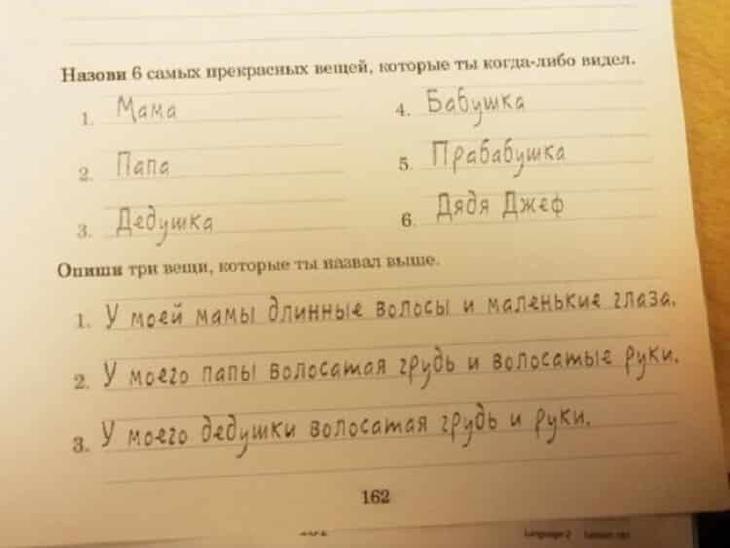 Назови 6 самых прекрасных вещей, которые ты когда-либо видел.
1. Мама
4. Бабушка
2. Папа
5. Прабабушка
3. Дедушка
6. Дядя Джеф
Опиши три вещи, которые ты назвал выше.
1. У моей мамы длинные волосы и маленькие глаза.
2. У моего папы волосатая грудь и волосатые руки.
3. У моего дедушки волосатая грудь и руки.
162
Language 2